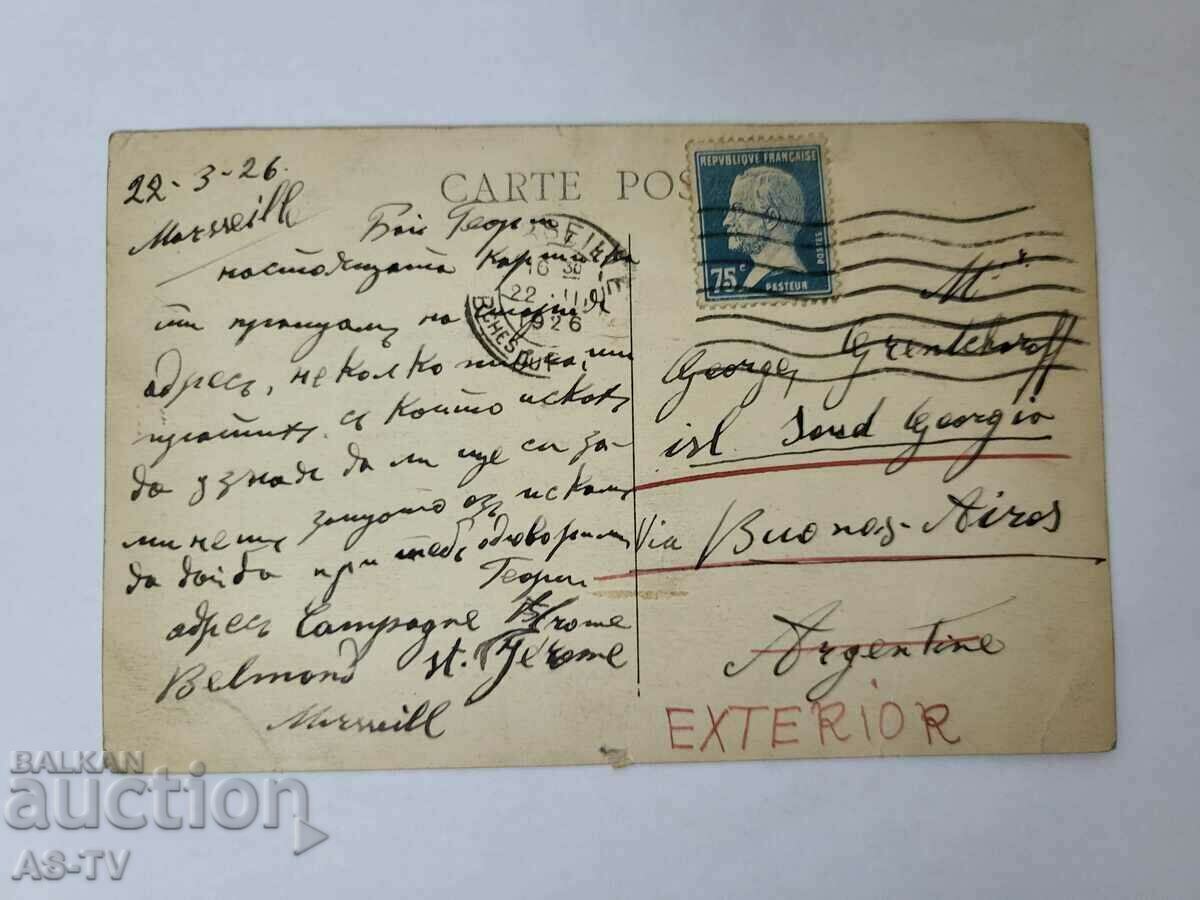 22-3-26.
Marsseill
CARTE POS
REPVBLIQUE FRANÇAISE
75c
POSTES
PASTEUR
16 30
22 III
1926
Бай Георги
настоящата картичка
ти пращамъ на
адресъ, неколко писма ти
пратихъ съ които искахъ
да узная да ли ще си за-
минешъ защото азъ искамъ
да дойда при тебъ одговори ми
Георги
адресъ Campagne
Belmond st. Jérome
Marseill
Mr
George Grentcharoff
isl Soud Georgia
Via Buenos-Aires
Argentine
EXTERIOR
BALKAN
auction
AS-TV